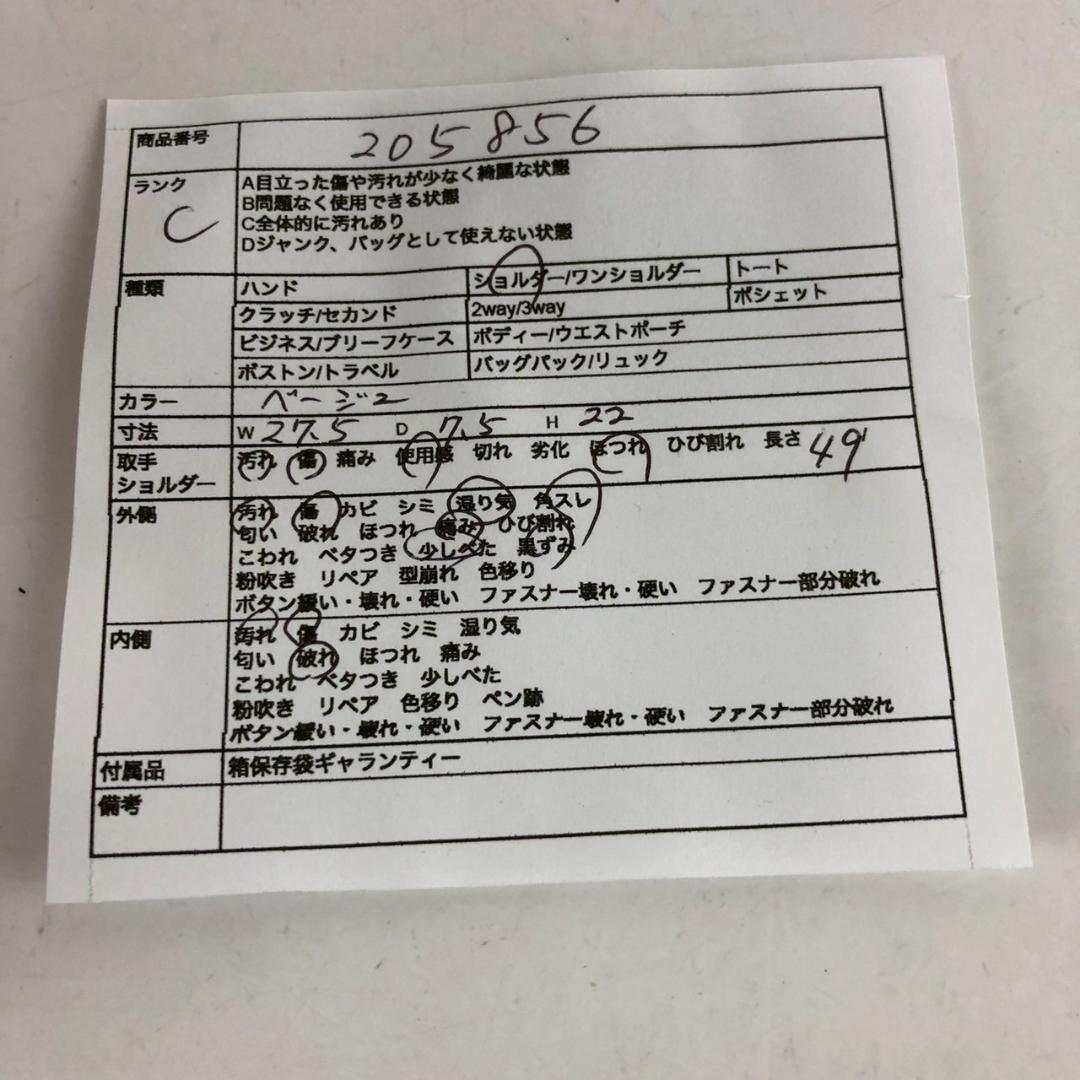 商品番号 205856
ランク A目立った傷や汚れが少なく綺麗な状態
B問題なく使用できる状態
C C全体的に汚れあり
Dジャンク、バッグとして使えない状態
種類 ハンド ショルダー/ワンショルダー トート
クラッチ/セカンド 2way/3way ポシェット
ビジネス/ブリーフケース ボディー/ウエストポーチ
ボストン/トラベル バッグパック/リュック
カラー ベージュ
寸法 W 27.5 D 7.5 H 22
取手 汚れ 傷 痛み 使用感 切れ 劣化 ほつれ ひび割れ 長さ 49
ショルダー
外側 汚れ 傷 カビ シミ 湿り気 角スレ
匂い 破れ ほつれ 痛み ひび割れ
こわれ ベタつき 少しべた 黒ずみ
粉吹き リペア 型崩れ 色移り
ボタン緩い・壊れ・硬い ファスナー壊れ・硬い ファスナー部分破れ
内側 汚れ 傷 カビ シミ 湿り気
匂い 破れ ほつれ 痛み
こわれ ベタつき 少しべた
粉吹き リペア 色移り ペン跡
ボタン緩い・壊れ・硬い ファスナー壊れ・硬い ファスナー部分破れ
付属品 箱保存袋ギャランティー
備考